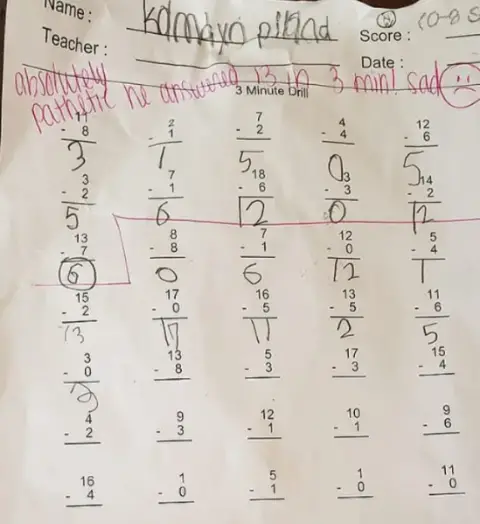 Name : kamdyn piland
Score : (0-8 S
Teacher :
Date :
absolutely
pathetic he answered 13 in 3 min! sad
3 Minute Drill
17 2 7 4 12
- 8 - 1 - 2 - 4 - 6
3 1 5 0 5
3 7 18 3 14
- 2 - 1 - 6 - 3 - 2
5 6 12 0 12
13 8 7 12 5
- 7 - 8 - 1 - 0 - 4
6 0 6 12 1
15 17 16 13 11
- 2 - 0 - 5 - 5 - 6
13 17 11 2 5
3 13 5 17 15
- 0 - 8 - 3 - 3 - 4
3
4 9 12 10 9
- 2 - 3 - 1 - 1 - 6
16 1 5 1 11
- 4 - 0 - 1 - 0 - 0